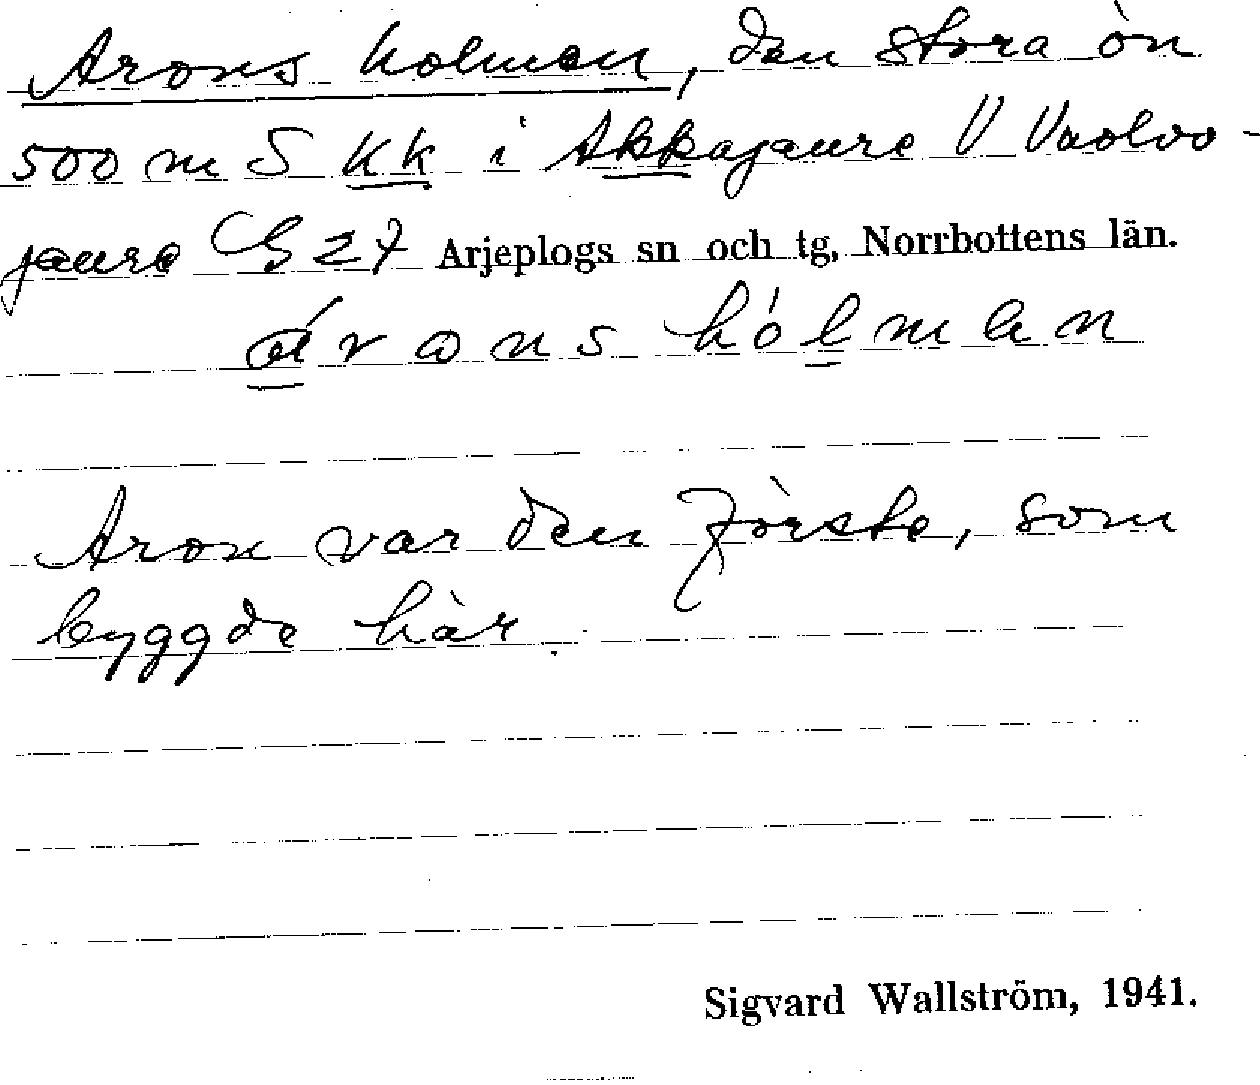 Arons holmen, den stora ön
500 m S KK i Akkajaure V Vuolvo-
jaure G 27 Arjeplogs sn och tg, Norrbottens län.
árons hólmen
Aron var den förste, som
byggde här.
Sigvard Wallström, 1941.